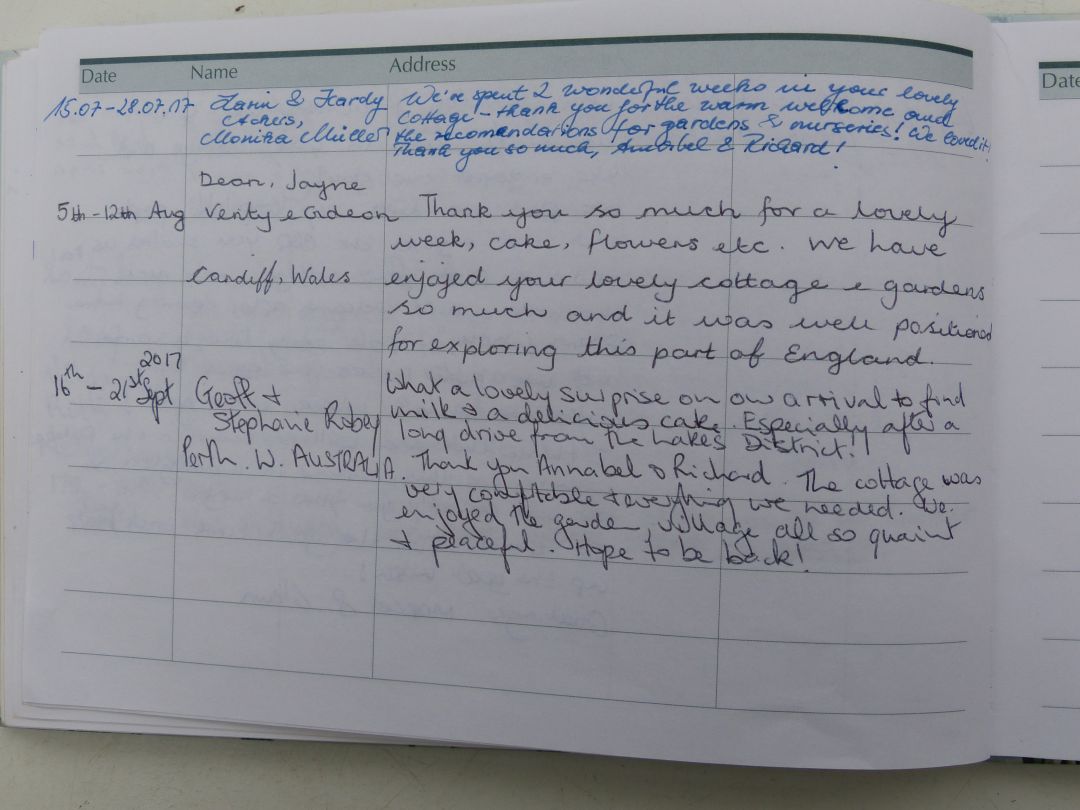 Date Name Address
15.07-28.07.17 & Hardy We're spent 2 wonderful weeks in your lovely
cottage - thank you for the warm welcome and
Monika Müller the recomendations for gardens & nurseries! We loved it!
Thank you so much, Annabel & Richard!
Dean, Jayne
5th-12th Aug Verity & Gideon Thank you so much for a lovely
week, cake, flowers etc. We have
Cardiff, Wales enjoyed your lovely cottage & gardens
so much and it was well positioned
for exploring this part of England.
2017
16th - 21st Sept Geoff + What a lovely surprise on our arrival to find
Stephanie Robey milk & a delicious cake. Especially after a
long drive from the Lakes District!
Perth. W. AUSTRALIA. Thank you Annabel & Richard. The cottage was
very comfortable + everything we needed. We
enjoyed the garden, village all so quaint
+ peaceful. Hope to be back!
Date